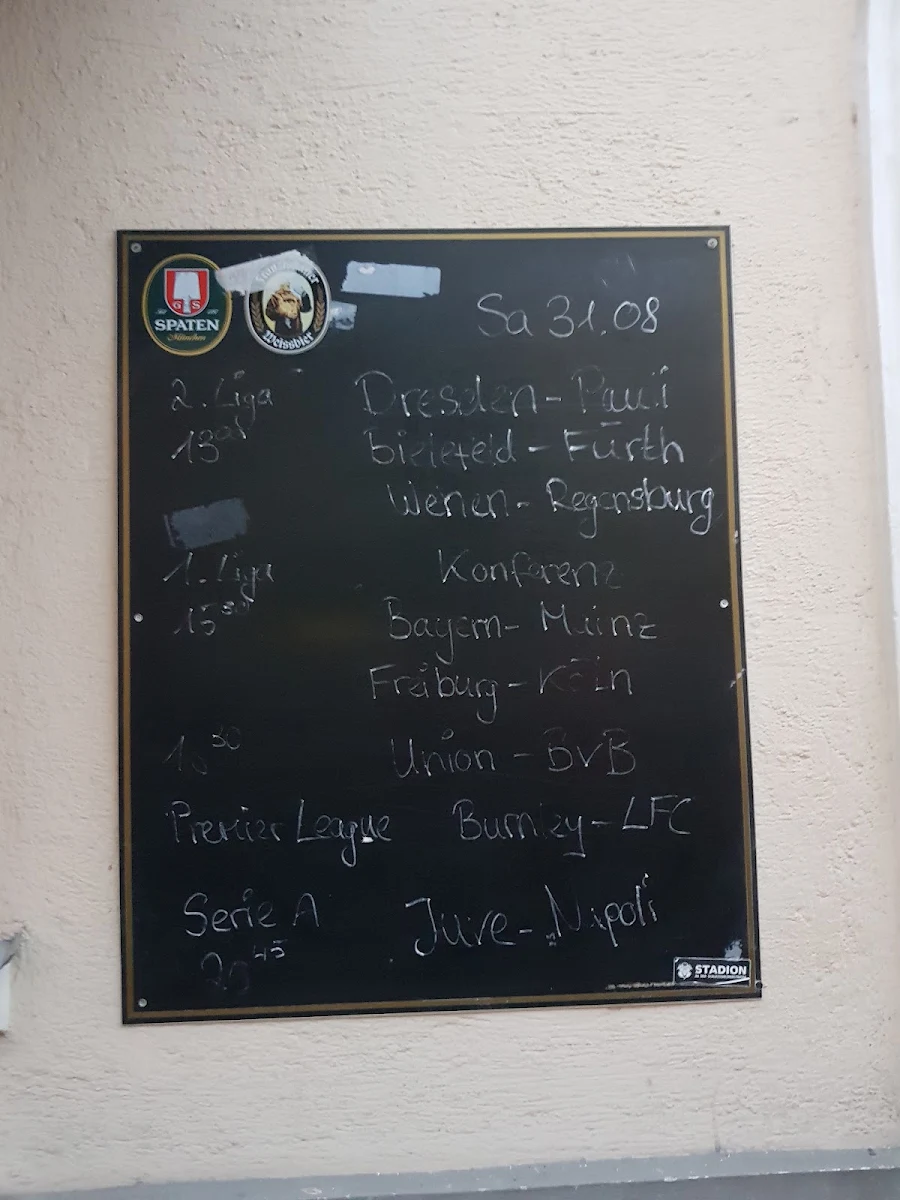 G S
SPATEN
München
Weissbier
Sa 31.08
2. Liga Dresden - Pauli
13 Bielefeld - Fürth
Wehen - Regensburg
1. Liga Konferenz
15 30 Bayern - Mainz
Freiburg - Köln
30 Union - BVB
Premier League Burnley - LFC
Serie A Juve - Napoli
20 45
STADION